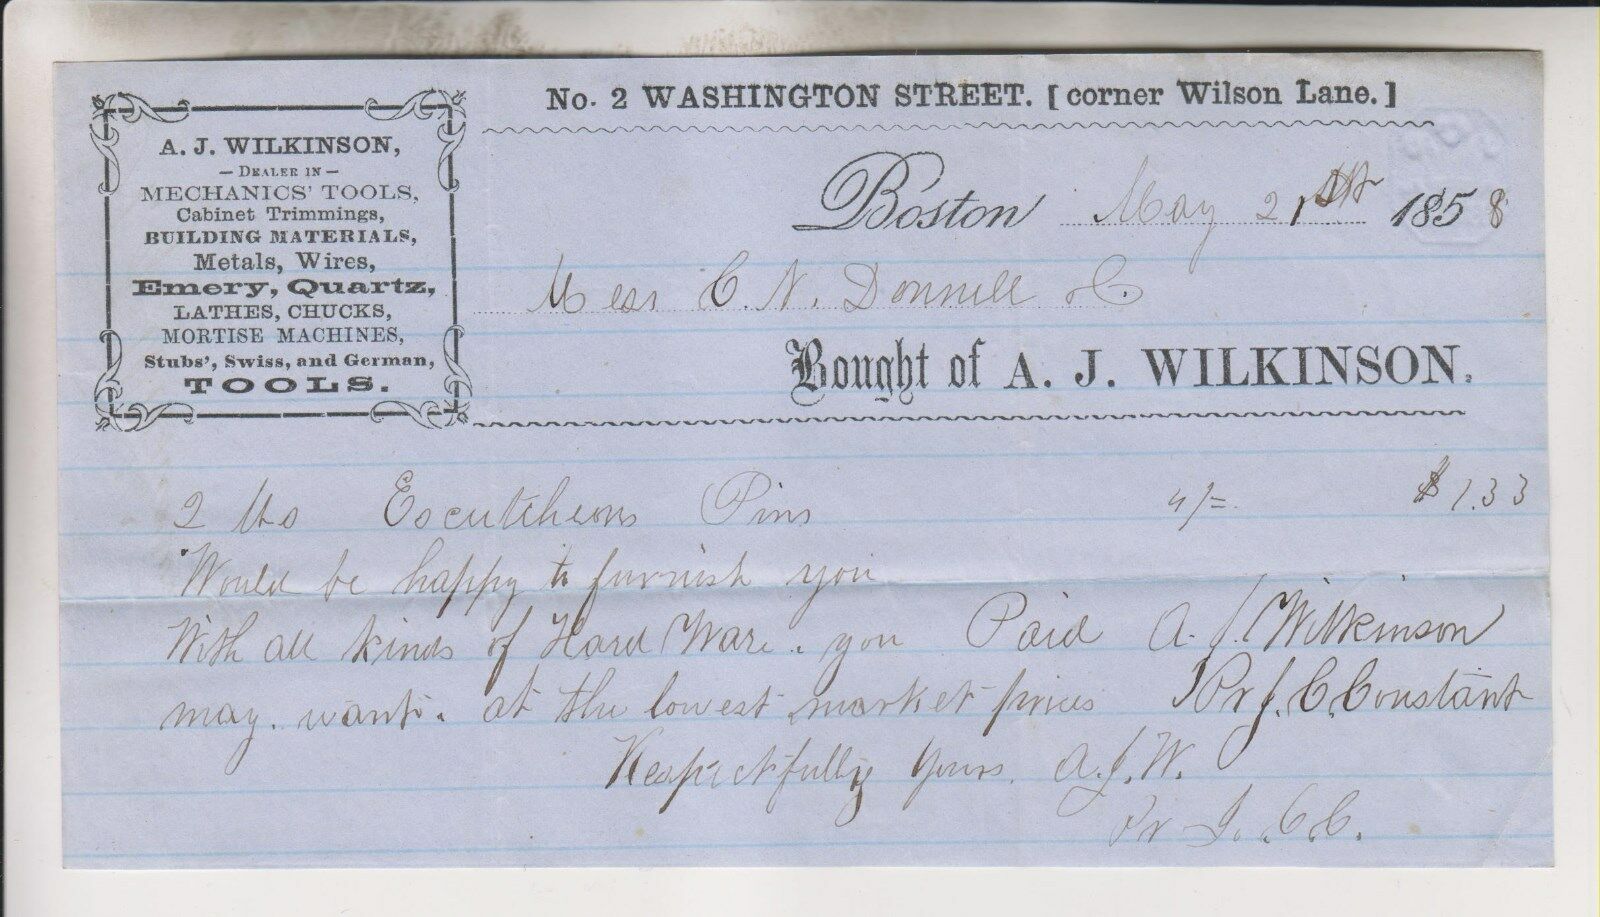 A. J. WILKINSON,
— DEALER IN —
MECHANICS' TOOLS,
Cabinet Trimmings,
BUILDING MATERIALS,
Metals, Wires,
Emery, Quartz,
LATHES, CHUCKS,
MORTISE MACHINES,
Stubs', Swiss, and German,
TOOLS.
No. 2 WASHINGTON STREET. [ corner Wilson Lane. ]
Boston May 21st 1858
Mess C. N. Donnell
Bought of A. J. WILKINSON.
2 lbs Escutcheons Pins 4/= $1.33
Would be happy to furnish you
With all kinds of Hard Ware. you Paid A. J. Wilkinson
may. want. at the lowest market prices Pr J. C. Constant
Respectfully Yours. A. J. W.
Pr J. C. C.